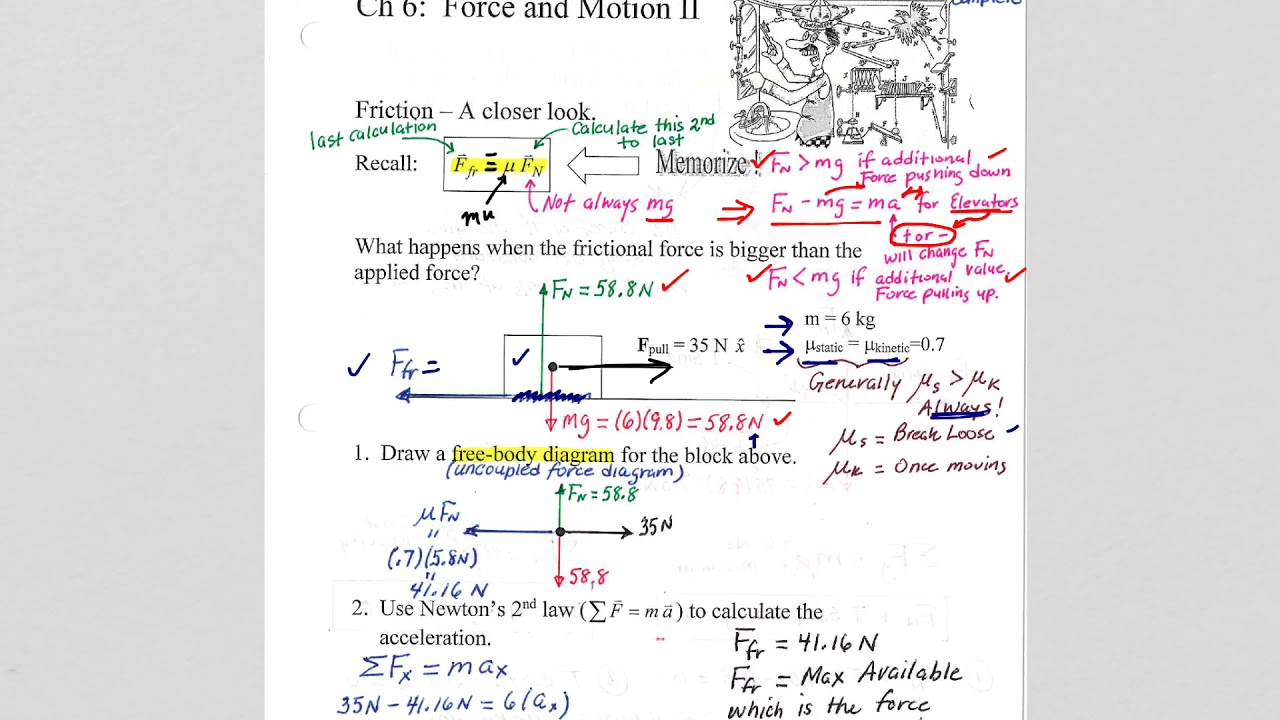 Ch 6: Force and Motion II
Friction – A closer look.
last calculation
Calculate this 2nd
to last
Recall:
F⃗fr = μ F⃗N
Memorize!
mu
Not always mg
✓ FN > mg if additional ✓
Force pushing down
⇒ FN - mg = ma for Elevators
+ or -
will change FN
value
✓ FN < mg if additional ✓
Force pulling up.
What happens when the frictional force is bigger than the
applied force?
FN = 58.8N ✓
m = 6 kg
μstatic = μkinetic=0.7
Fpull = 35 N x̂
✓ Ffr =
✓
Generally μs > μk
Always!
mg = (6)(9.8) = 58.8N ✓
μs = Break Loose
μk = Once moving
1. Draw a free-body diagram for the block above.
(uncoupled force diagram)
FN = 58.8
μFN
35N
"
(.7)(5.8N)
58,8
"
41.16 N
2. Use Newton's 2nd law (∑F⃗ = m a⃗) to calculate the
acceleration.
Ffr = 41.16 N
ΣFx = max
Ffr = Max Available
which is the force
35N - 41.16N = 6(ax)